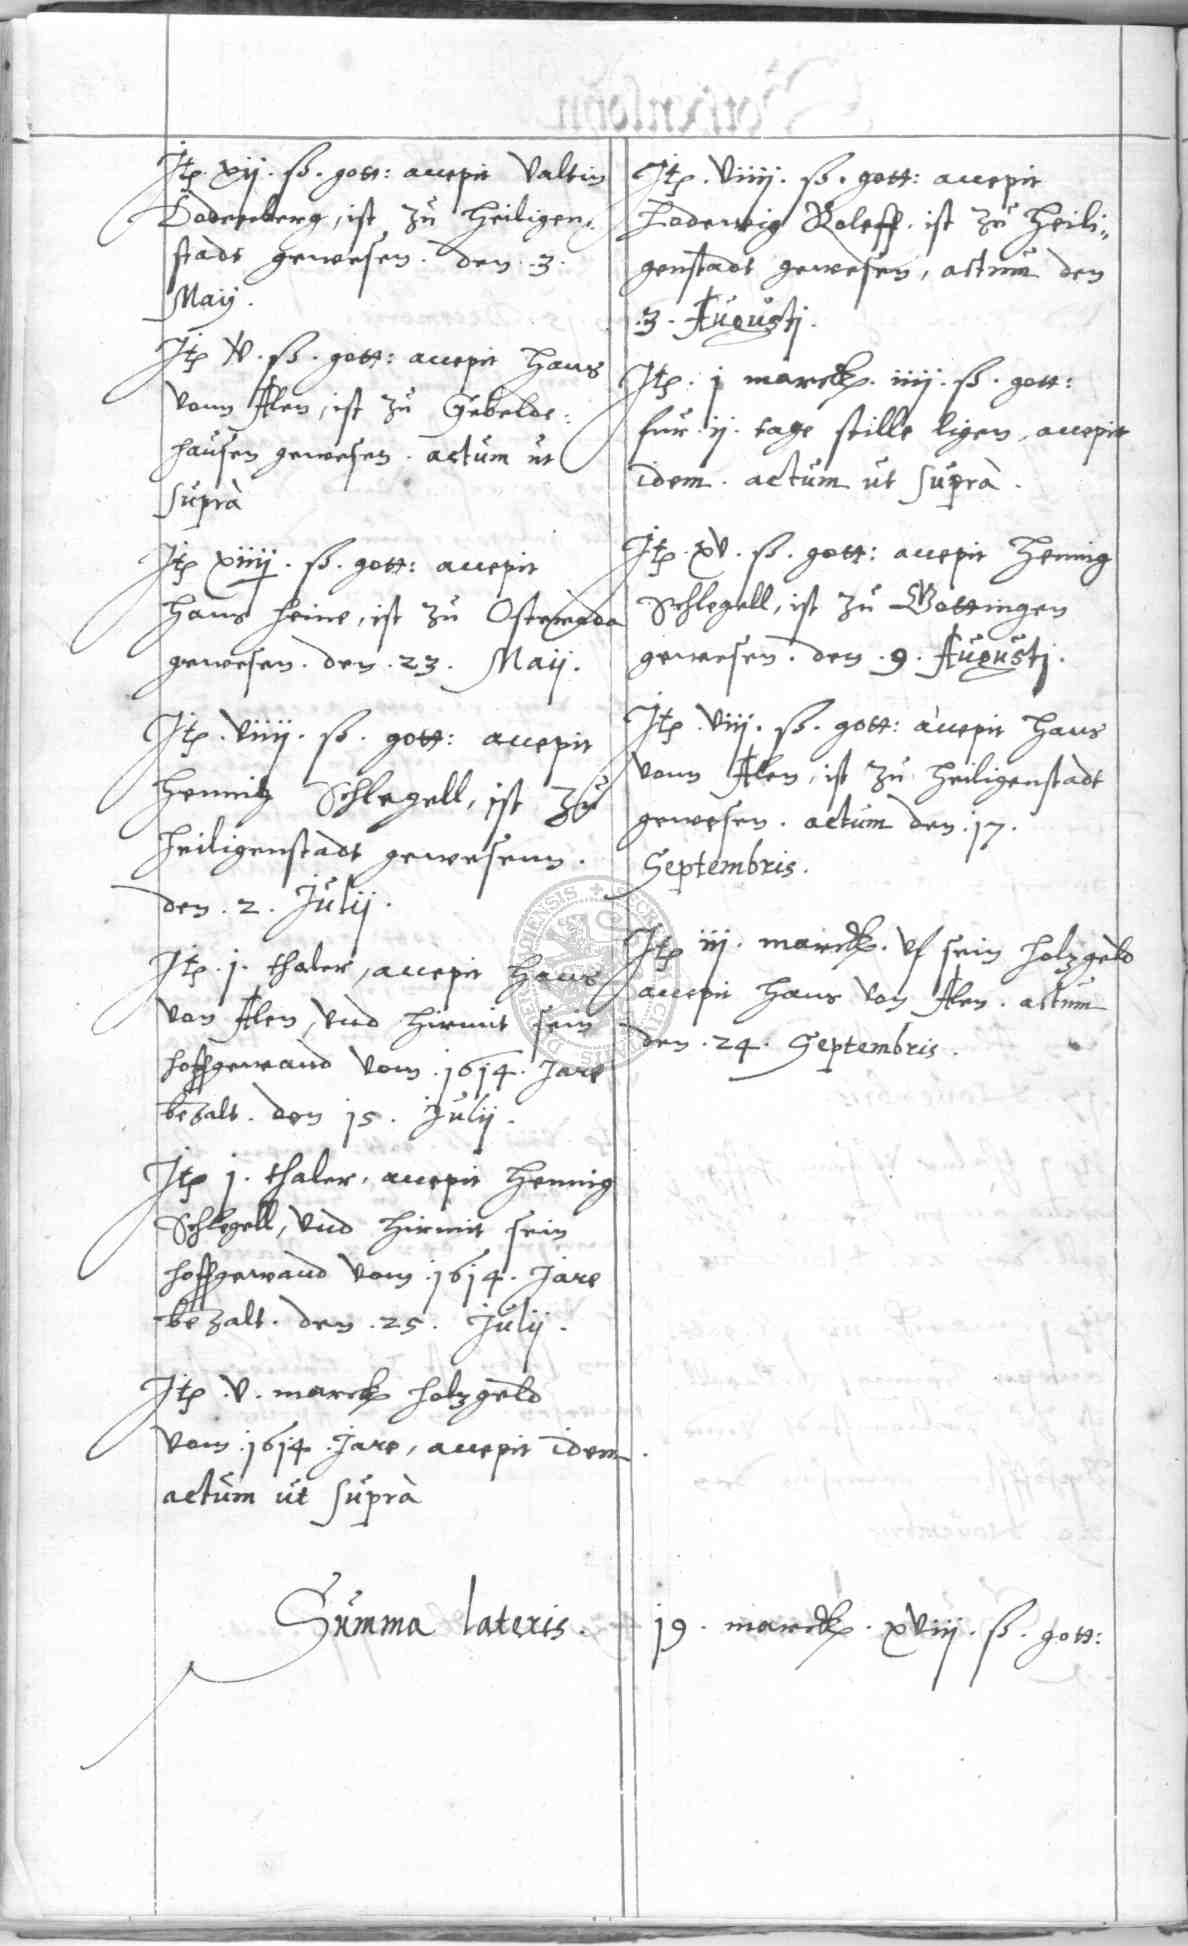 Itp. xij. ß. gott: accepit Valtin
Dodenberg, ist zů Heiligen:
stadt gewesen. den .3.
Maij.
Itp v. ß. gott: accepit Hans
vonn Alen, ist zů Gebelde:
hausen gewesen. actum ut
suprà
Itp xiiij. ß. gott: accepit
Hans Heine, ist zů Osteroda
gewesen. den .23. Maij.
Itp. viiij. ß. gott: accepit
Hennig Schlegell, ist zů
Heiligenstadt gewesenn.
den .2. Julij.
Itp. j. thaler, accepit Hans
von Alen, vnd hirmit sein
hoffgewand vom .1614. Jare
bezalt. den 15. Julij.
Itp j. thaler, accepit Hennig
Schlegell, vnd hirmit sein
hoffgewand vom .1614. Jare
bezalt. den .25. Julij.
Itp .v. marck holzgeld
vom .1614. Jare, accepit idem
actum ut suprà
Itp. viiij. ß. gott: accepit
Lodewig Roleff. ist zů Heili„
genstadt gewesen, actum den
.3. Augusti.
Itp. j marck. iiij. ß. gott:
fur .ij. tage stille ligen, accepit
idem. actum ut suprà.
Itp. xv. ß. gott: accepit Hennig
Schlegell, ist zů Gottingen
gewesen. den .9. Augusti.
Itp. viij. ß. gott: accepit Hans
vonn Alen, ist zů Heiligenstadt
gewesen. actum den .17.
Septembris.
Itp iij. marck. vf sein holzgeld
accepit Hans von Alen. actum
den .24. Septembris.
Summa lateris. 19. marck. xviij. ß. gott: